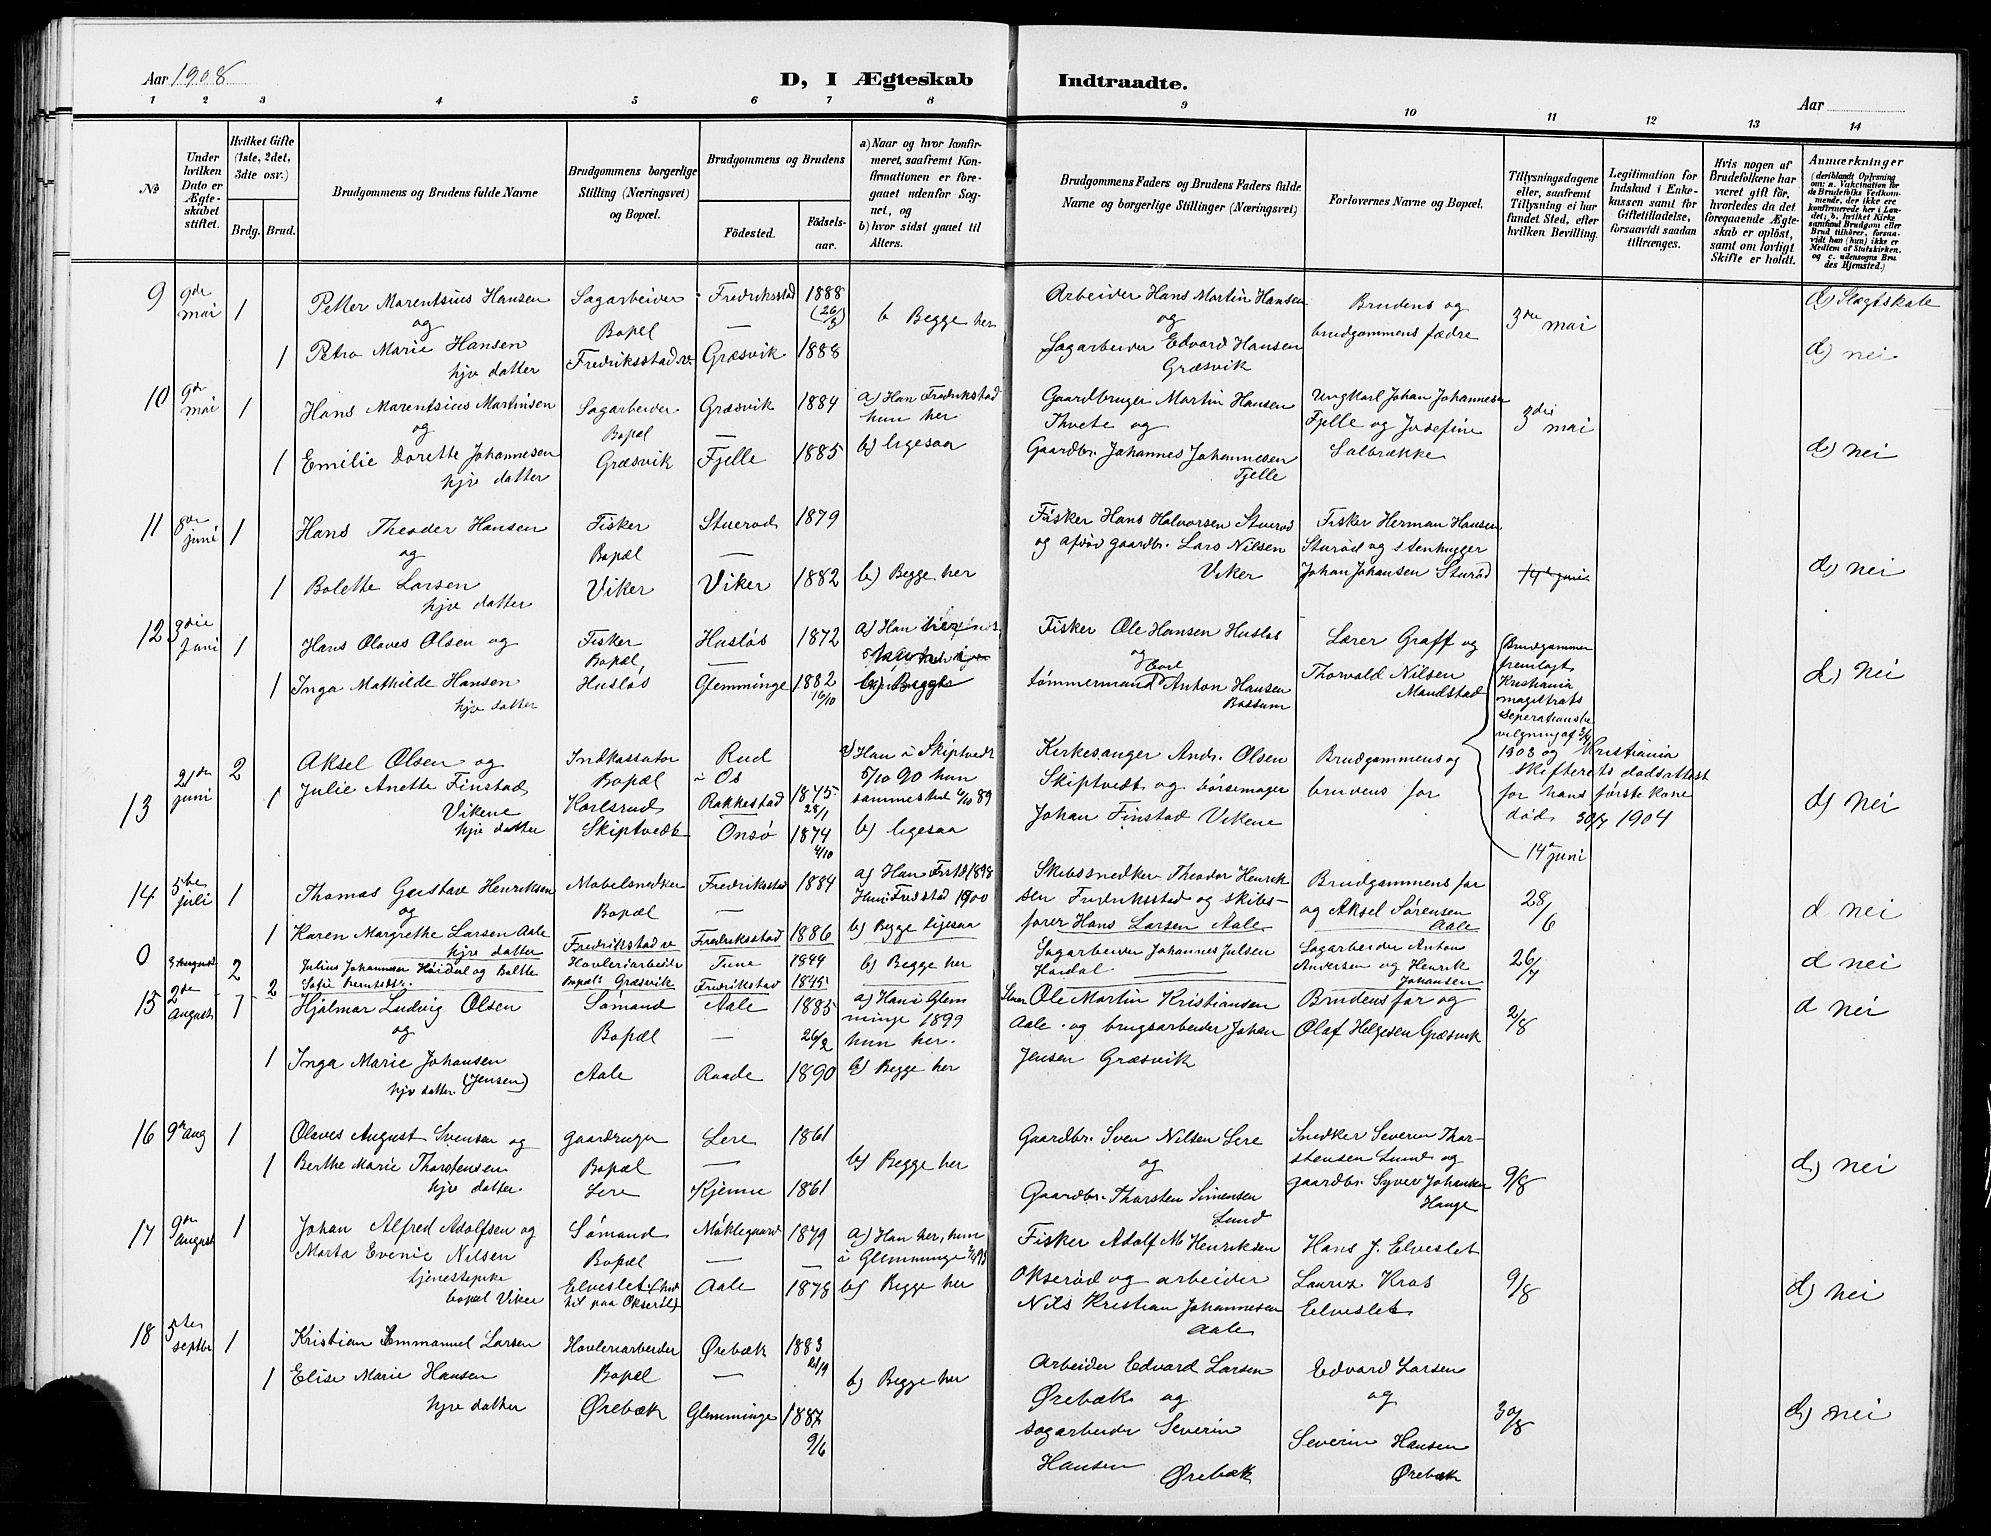 Aar 1908
D, I Ægteskab Indtraadte.
Aar
1 2 3 4 5 6 7 8 9 10 11 12 13 14
№
Under hvilken Dato er Ægteskabet stiftet.
Hvilket Gifte (1ste, 2det, 3die osv.)
Brdg. Brud.
Brudgommens og Brudens fulde Navne
Brudgommens borgerlige Stilling (Næringsvei) og Bopæl.
Brudgommens og Brudens
Födested.
Födselsaar.
a) Naar og hvor konfirmeret, saafremt Konfirmationen er foregaaet udenfor Sognet, og
b) hvor sidst gaaet til Alters.
Brudgommens Faders og Brudens Faders fulde Navne og borgerlige Stillinger (Næringsvei)
Forlovernes Navne og Bopæl.
Tillysningsdagene eller, saafremt Tillysning ei har fundet Sted, efter hvilken Bevilling.
Legitimation for Indskud i Enkekassen samt for Giftetilladelse, forsaavidt saadan tiltrænges.
Hvis nogen af Brudefolkene har været gift för, hvorledes da det foregaaende Ægteskab er oplöst, samt om lovligt Skifte er holdt.
Anmærkninger
(deriblandt Oplysning om: a. Vakcination for de Brudefolks Vedkommende, der ikke ere konfirmerede her i Landet; b. hvilket Kirkesamfund Brudgom eller Brud tilhörer, forsaavidt han (hun) ikke er Medlem af Statskirken. og c. udensogns Brudes Hjemsted.)
9 9de mai 1 Petter Marentsius Hansen Sagarbeider Fredriksstad 1888 (26/3) b Begge her Arbeider Hans Martin Hansen Brudens og 3die mai
og Bopel — og brudgommens fædre
1 Petra Marie Hansen Fredriksstad v. Græsvik 1888 Sagarbeider Edvard Hansen d) nei
hjv datter Græsvik
10 9de mai 1 Hans Marentsius Martinsen Sagarbeider Græsvik 1884 a) Han Fredrikstad Gaardbruger Martin Hansen Ungkarl Johan Johannesen 3die mai
og Bopel — hun her Thvete og Fjelle og Josefine
1 Emilie Dorette Johannesen Græsvik Fjelle 1885 b) ligesaa Gaardbr. Johannes Johannesen Solbrække d) nei
hjv datter Fjelle
11 8de juni 1 Hans Theodor Hansen Fisker Stuerød 1879 Fisker Hans Halvorsen Stuerød Fisker Herman Hansen
og Bopæl — og afdød gaardbr. Lars Nilsen Sturød og stenhugger
1 Bolette Larsen Viker Viker 1882 b) Begge her Viker Johan Johansen Sturød d) nei
hjv datter
12 juni 1 Hans Olaves Olsen og Fisker Husløs 1872 a) Han Fisker Ole Hansen Husløs Lærer Graff og
Bopæl, — og Thorvald Nilsen
1 Inga Mathilde Hansen Husløs Glemminge 1882 16/10 tømmermand Carl Anton Hansen Mandstad d) nei
hjv datter Bossum
Brudgommen fremlagt Kristiania magistrats seperationsbevilgning af 1903 og Kristiania skifterets dødsattest for hans første kone død 30/7 1904
13 21de juni 2 Aksel Olsen og Indkassator Rud a) Han i Skiptvedt Kirkesanger Andr. Olsen Brudgommens og
1 Julie Anette Finstad Bopæl i Os 5/10 90 hun Skiptvedt og børsemager brudens far
Vikene Karlsrud Rakkestad 1875 28/1 sammested 6/10 89 Johan Finstad Vikene d) nei
hjv datter Skiptvedt Onsø 1874 4/10 b) ligesaa 14de juni
14 5te juli 1 Thomas Gustav Henriksen Møbelsnedker Fredriksstad 1884 a) Han Frstd 1898 Skibssnedker Theodor Henrik- Brudgommens far 28/6
og Bopæl — Hun i Fredstad 1900 sen Fredriksstad og skibs- og Aksel Sørensen d nei
1 Karen Margrethe Larsen Aale Fredrikstad v Fredriksstad 1886 b) Begge ligesaa fører Hans Larsen Aale Aale
hjv datter
0 3 August 2 Julius Johannesen Høidal og Bolette Høvleriarbeider Tune 1844 b) Begge her Sagarbeider Johannes Julsen Sagarbeider Anton 26/7 d nei
2 Sofie Berntsdtr. Bopæl: Græsvik Fredrikstad 1845 Høidal Andersen og Henrik Johansen
15 2de August 1 Hjalmar Ludvig Olsen Sømand Aale 1885 26/2 a) Han i Glem Ole Martin Kristiansen Brudens far og 2/8 d nei
og Bopæl — minge 1899 Aale og brugsarbeider Johan Olaf Helgesen Græsvik
hun her. Jensen Græsvik
1 Inga Marie Johansen Aale Raade 1890 b) Begge her
hjv datter (Jensen)
16 9de aug 1 Olaves August Svensen og gaardbruger Lere 1861 Gaardbr. Sven Nilsen Lere Snedker Severin Thor-
1 Berthe Marie Thorstensen Bopæl — b) Begge her og stensen Lund og 9/8 d) nei
hjv datter Lere Kjenne 1861 Gaardbr. Thorsten Simensen gaardbr. Syver Johansen
Lund Hauge
17 9de august 1 Johan Alfred Adolfsen og Sømand Møklegaard 1879 a) Han her, hun Fisker Adolf M Henriksen Hans J. Elveslet
Marta Evenie Nilsen Bopæl — i Glemminge Okserød og arbeider Lauriz Kros 9/8
tjenestepike Elveslet Aale 1878 b) Begge her Nils Kristian Johannesen Elveslet d) nei
bopæl Viker til paa Okserød) Aale
18 5te septbr 1 Kristian Emmanuel Larsen Høvleriarbeider Ørebæk 1883 21/9 Arbeider Edvard Larsen Edvard Larsen
1 Elise Marie Hansen Bopæl — b) Begge her Ørebæk og og 30/8 d) nei
hjv datter Ørebæk Glemminge 1887 9/6 sagarbeider Severin Severin Hansen
Hansen Ørebæk Ørebæk